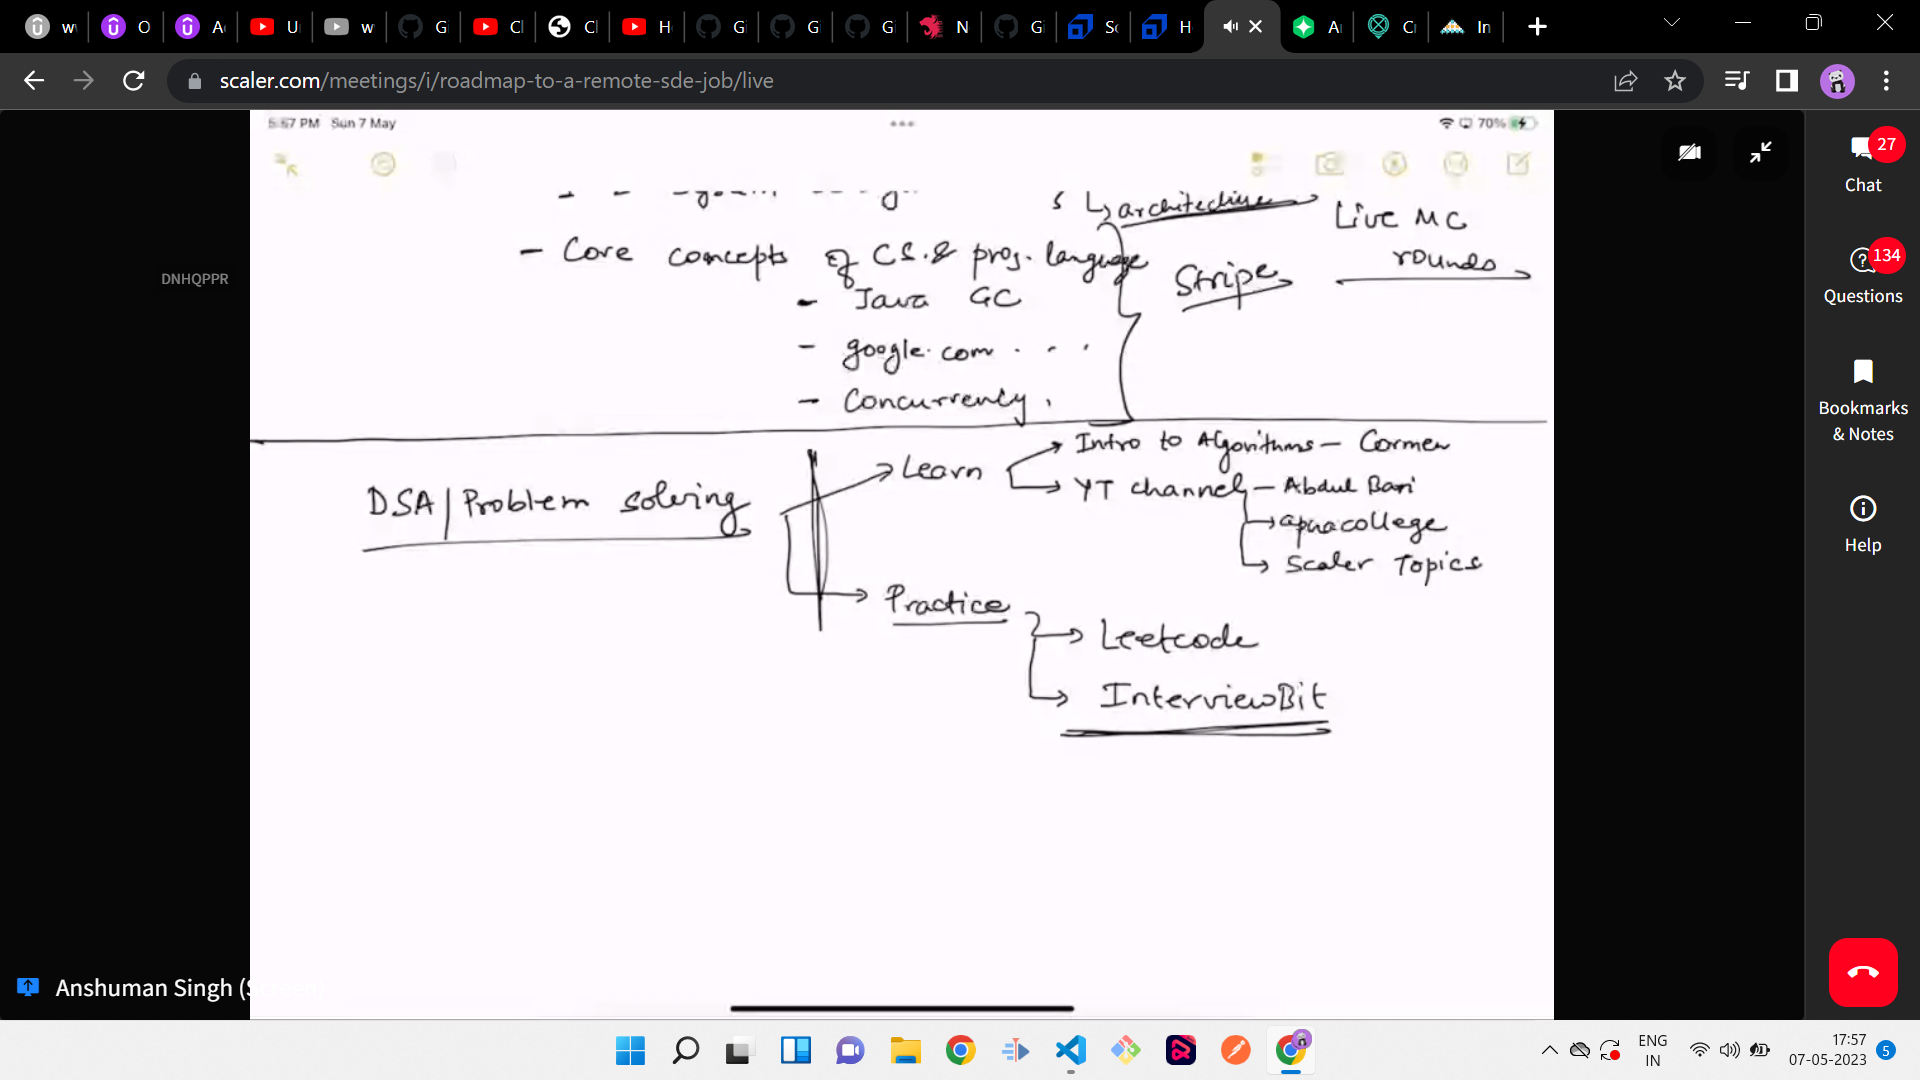 w O A U w G Cl Cl H G G G N G Sc H A C In
scaler.com/meetings/i/roadmap-to-a-remote-sde-job/live
5:57 PM Sun 7 May
70%
↳ architecture
Live MC
rounds
- Core concepts of CS. & prog. language
Stripe
- Java GC
- google.com . . .
- Concurrency.
DSA | Problem solving
Learn
Intro to Algorithms - Cormen
YT channel - Abdul Bari
apnacollege
Scaler Topics
Practice
Leetcode
InterviewBit
DNHQPPR
27
Chat
134
Questions
Bookmarks
& Notes
Help
Anshuman Singh (Screen)
ENG
IN
17:57
07-05-2023
5